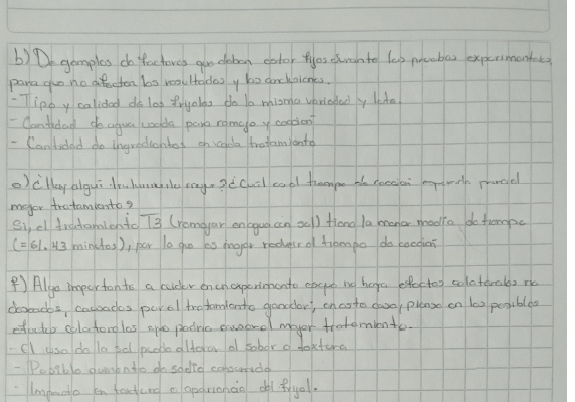 b) De ejemplos de factores que deban estar fijos durante las pruebas experimentales,
para que no afecten los resultados y las conclusiones.
- Tipo y calidad de los fryoles de la misma variedad y lote.
- Cantidad de agua usada para remojo y cocción
- Cantidad de ingredientes en cada tratamiento
e) ¿Hay algún tratamiento mejor? ¿Cuál es el tiempo de cocción
mejor tratamiento?
Si, el tratamiento T3 (remojar en agua con sal) tiene la menor media de tiempo
(=61.43 minutos), por lo que es mejor reducir el tiempo de cocción
f) Algo importante a cuidar en un experimento es que no haya efectos colaterales no
deseados, causados por el tratamiento ganador; en este caso, piense en los posibles
efectos colaterales que podría el mejor tratamiento.
- El uso de la sal puede alterar el sabor o textura
- Posible aumento de sodio consumido
- Impacto en textura o apariencia del fryol.